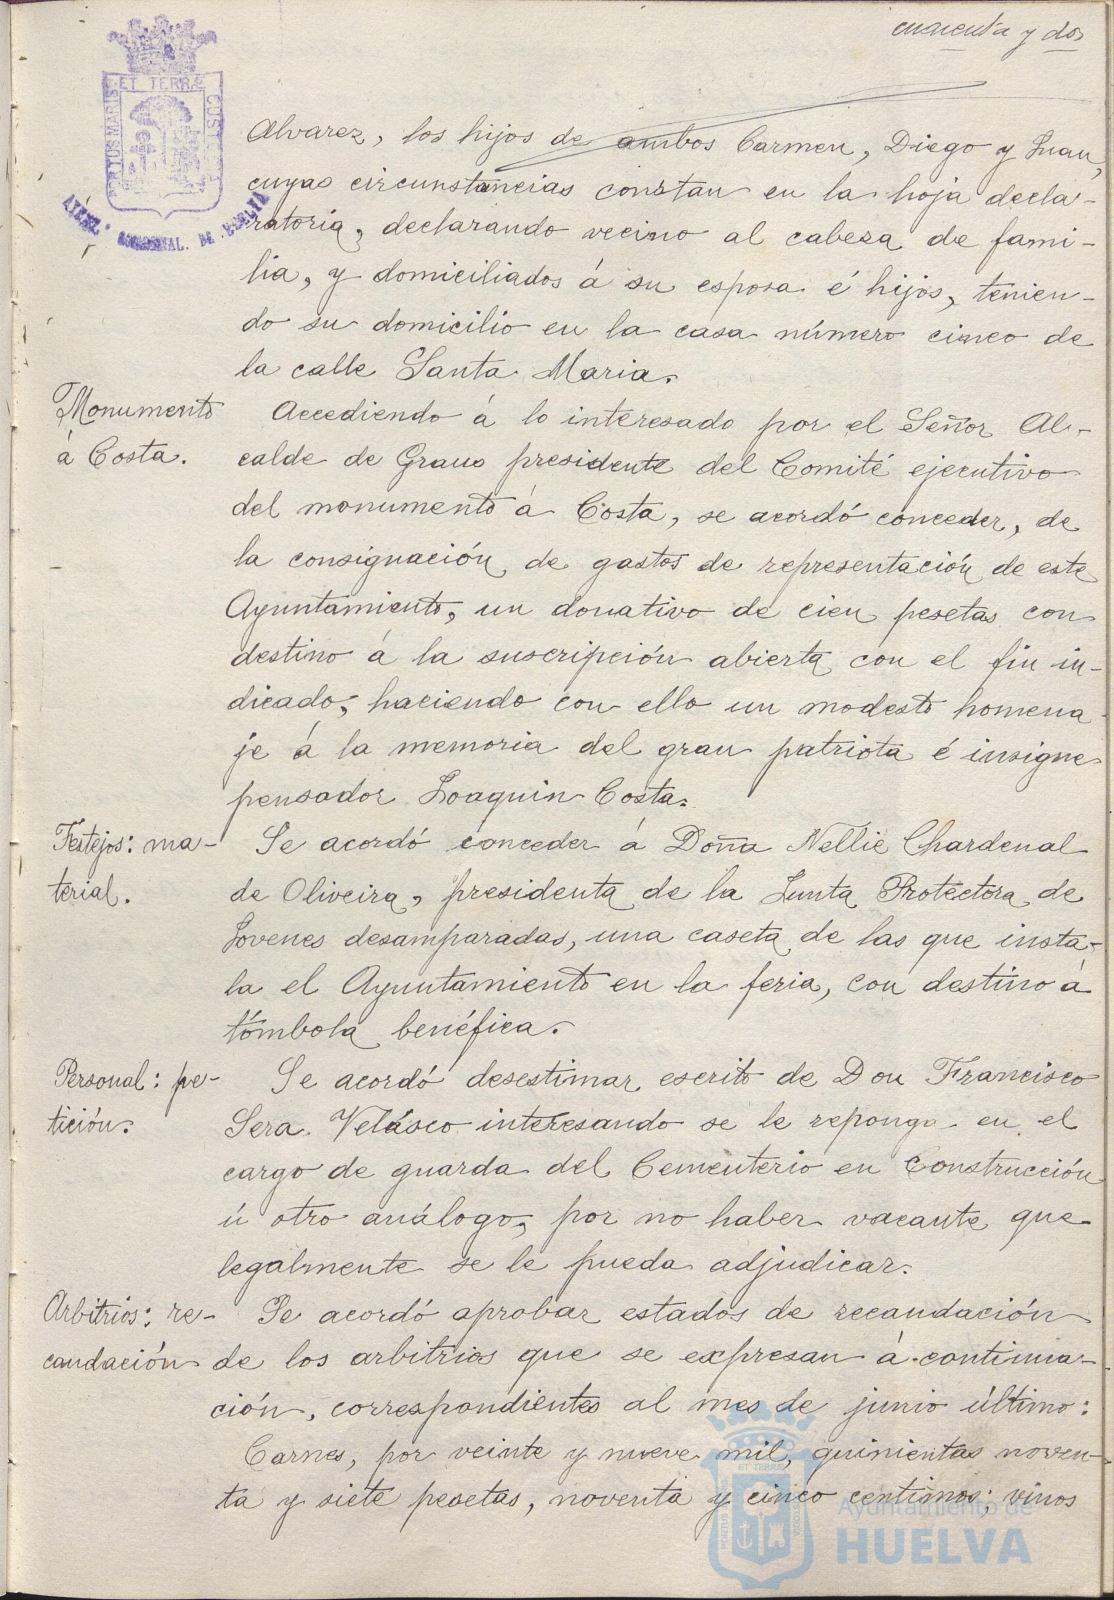 cuarenta y dos
PORTUS MARIS ET TERRÆ CUSTODIA
Alvarez, los hijos de ambos Carmen, Diego y Juan,
cuyas circunstancias constan en la hoja decla-
ratoria, declarando vecino al cabeza de fami-
lia, y domiciliados á su esposa é hijos, tenien-
do su domicilio en la casa número cinco de
la calle Santa Maria.
Monumento
á Costa.
Accediendo á lo interesado por el Señor Al-
calde de Graus presidente del Comité ejecutivo
del monumento á Costa, se acordó conceder, de
la consignación de gastos de representación de este
Ayuntamiento, un donativo de cien pesetas con
destino á la suscripción abierta con el fin in-
dicado, haciendo con ello un modesto homena
je á la memoria del gran patriota é insigne
pensador Joaquin Costa.
Festejos: ma-
terial.
Se acordó conceder á Doña Nellie Chardenal
de Oliveira, presidenta de la Junta Protectora de
Jovenes desamparadas, una caseta de las que insta-
la el Ayuntamiento en la feria, con destino á
tómbola benéfica.
Personal: pe-
tición.
Se acordó desestimar escrito de Don Francisco
Sera Velásco interesando se le reponga en el
cargo de guarda del Cementerio en Construcción
ú otro análogo, por no haber vacante que
legalmente se le pueda adjudicar.
Arbitrios: re-
caudación
Se acordó aprobar estados de recaudación
de los arbitrios que se expresan á continua-
ción, correspondientes al mes de junio último:
Carnes, por veinte y nueve mil, quinientas noven-
ta y siete pesetas, noventa y cinco centimos; vinos
Ayuntamiento de
HUELVA